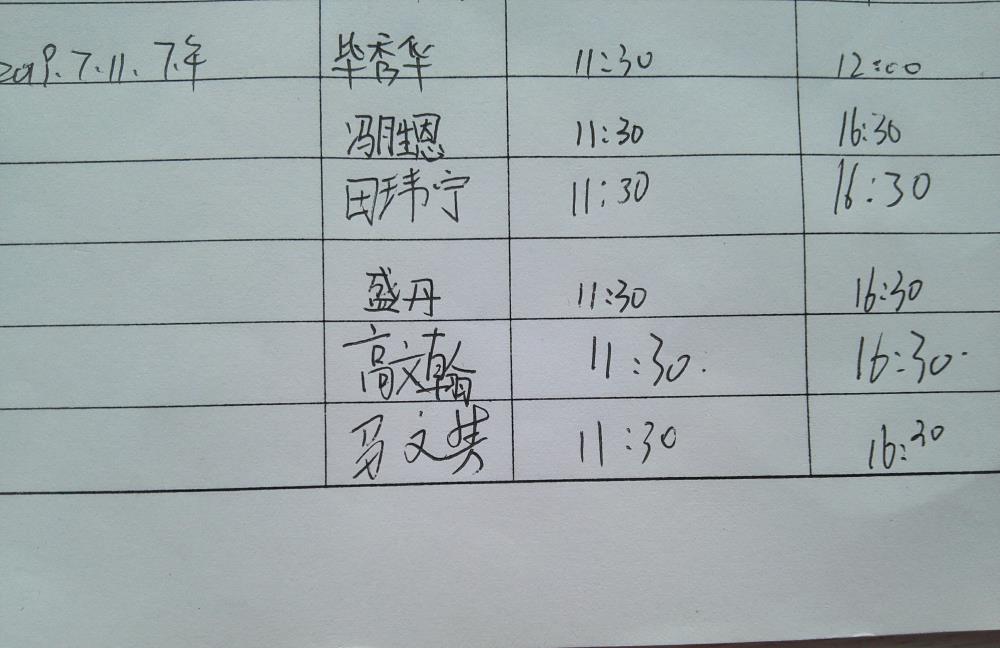 2019.7.11.下午 毕秀华 11:30 12:00
冯胜恩 11:30 16:30
田玮宁 11:30 16:30
盛丹 11:30 16:30
高文翰 11:30. 16:30.
文 11:30 16:30